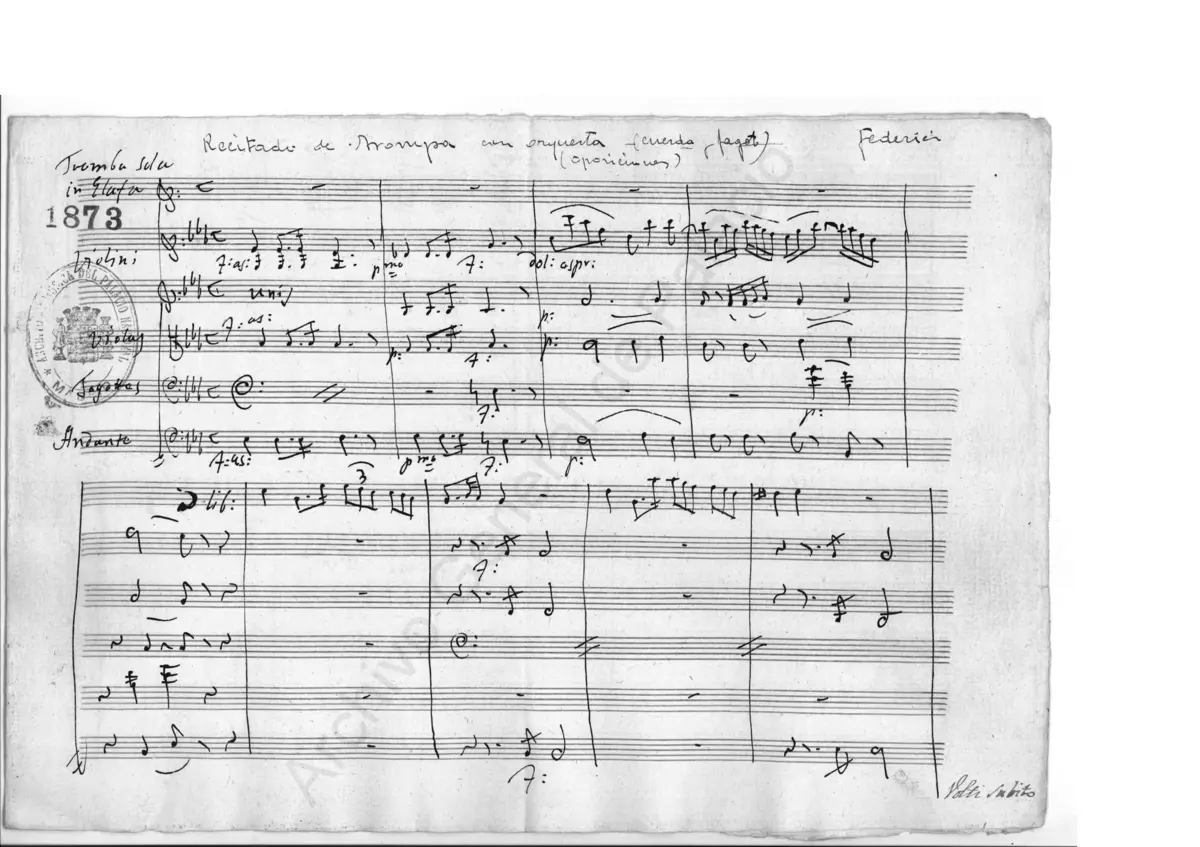 Recitado de trompa con orquesta (cuerda y fagot) Federici
(oposiciones)
Tromba sola
in Elafa
1873
Violini
F: as:
pmo
F:
dol: aspr:
unis
p:
Violas
F: as:
p:
F:
p:
Fagottos
F:
p:
Andante
F: as:
pmo
F:
p:
lib:
3
F:
F:
Volti subito
Archivo General de Palacio